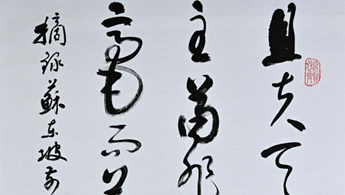 且夫天
主苟非
毫而
摘録蘇东坡前